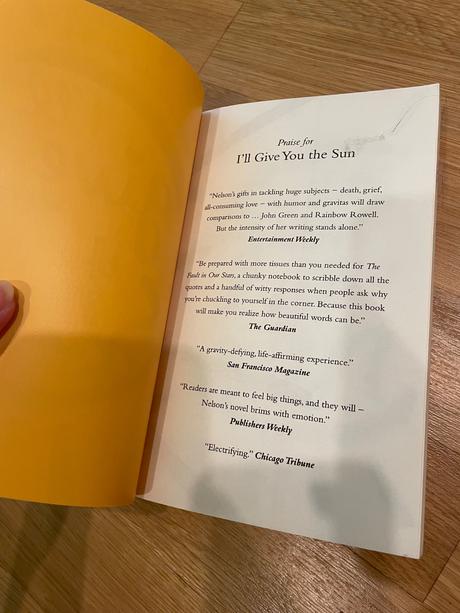 Praise for
I'll Give You the Sun
"Nelson's gifts in tackling huge subjects – death, grief,
all-consuming love – with humor and gravitas will draw
comparisons to ... John Green and Rainbow Rowell.
But the intensity of her writing stands alone."
Entertainment Weekly
"Be prepared with more tissues than you needed for The
Fault in Our Stars, a chunky notebook to scribble down all the
quotes and a handful of witty responses when people ask why
you're chuckling to yourself in the corner. Because this book
will make you realize how beautiful words can be."
The Guardian
"A gravity-defying, life-affirming experience."
San Francisco Magazine
"Readers are meant to feel big things, and they will –
Nelson's novel brims with emotion."
Publishers Weekly
"Electrifying." Chicago Tribune